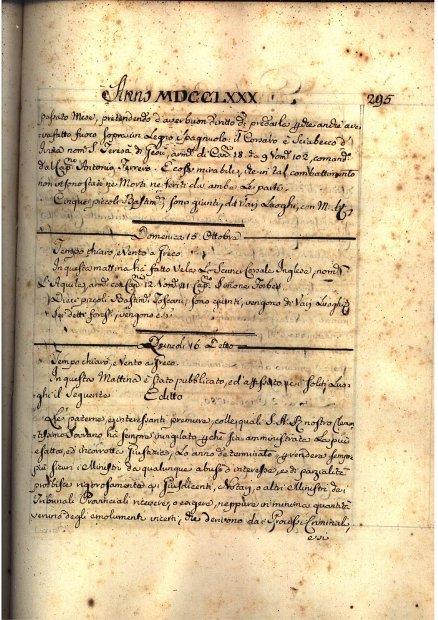 Anno MDCCLXXX 295
passato Mese, pretendendo d'aver buon diritto di predarlo per aver
fatto fuoco sopra un Legno Spagnuolo: il Corsaro è Sciabecco d'
Iviza nom.º S. Teresa di Gesù, arm.º di Can.ⁿⁱ 18. da 9 Uom. 102, comand.º
dal Cap.ⁿᵒ Antonio. E cosa mirabile, che in tal combattimento
non vi sono stati nè Morti nè feriti da ambe le parti.
Cinque piccoli Bastim.ⁱ sono giunti, da Varj Luoghi, con M.
Domenica 15. Ottobre
Tempo chiaro, e Vento a Greco.
In questa mattina ha fatto Vela Lo Scuner Corsale Inglese, nom.º
L'Aquila, arm.º con Can.ⁿⁱ 12. Uom. 81 Cap.ⁿᵒ Simone Forbes
Dieci piccoli Bastim.ⁱ Toscani, sono giunti, vengono di Varj Luoghi
Lunedì 16. Detto
Tempo chiaro, e Vento a Greco.
In questa Mattina è Stato pubblicato, ed affisso nei soliti Luo=
ghi il Seguente Editto
Le paterne, ed interessanti premure, colle quali S. A. R. nostro Clemen=
tissimo Sovrano ha sempre invigilato perchè sia amministrata La più
esatta, ed incorrotta Giustizia, Lo anno determinato a prendere sempre
più sicuri i Ministri da qualunque abuso d'interesse, e di parzialità
proibisce rigorosamente ai Giusdicenti, Notari, o altri Ministri dei
Tribunali Provinciali ricevere, o esigere, neppure in minima quantità
veruno degli emolumenti incerti, che derivono dai Processi Criminali,
essi